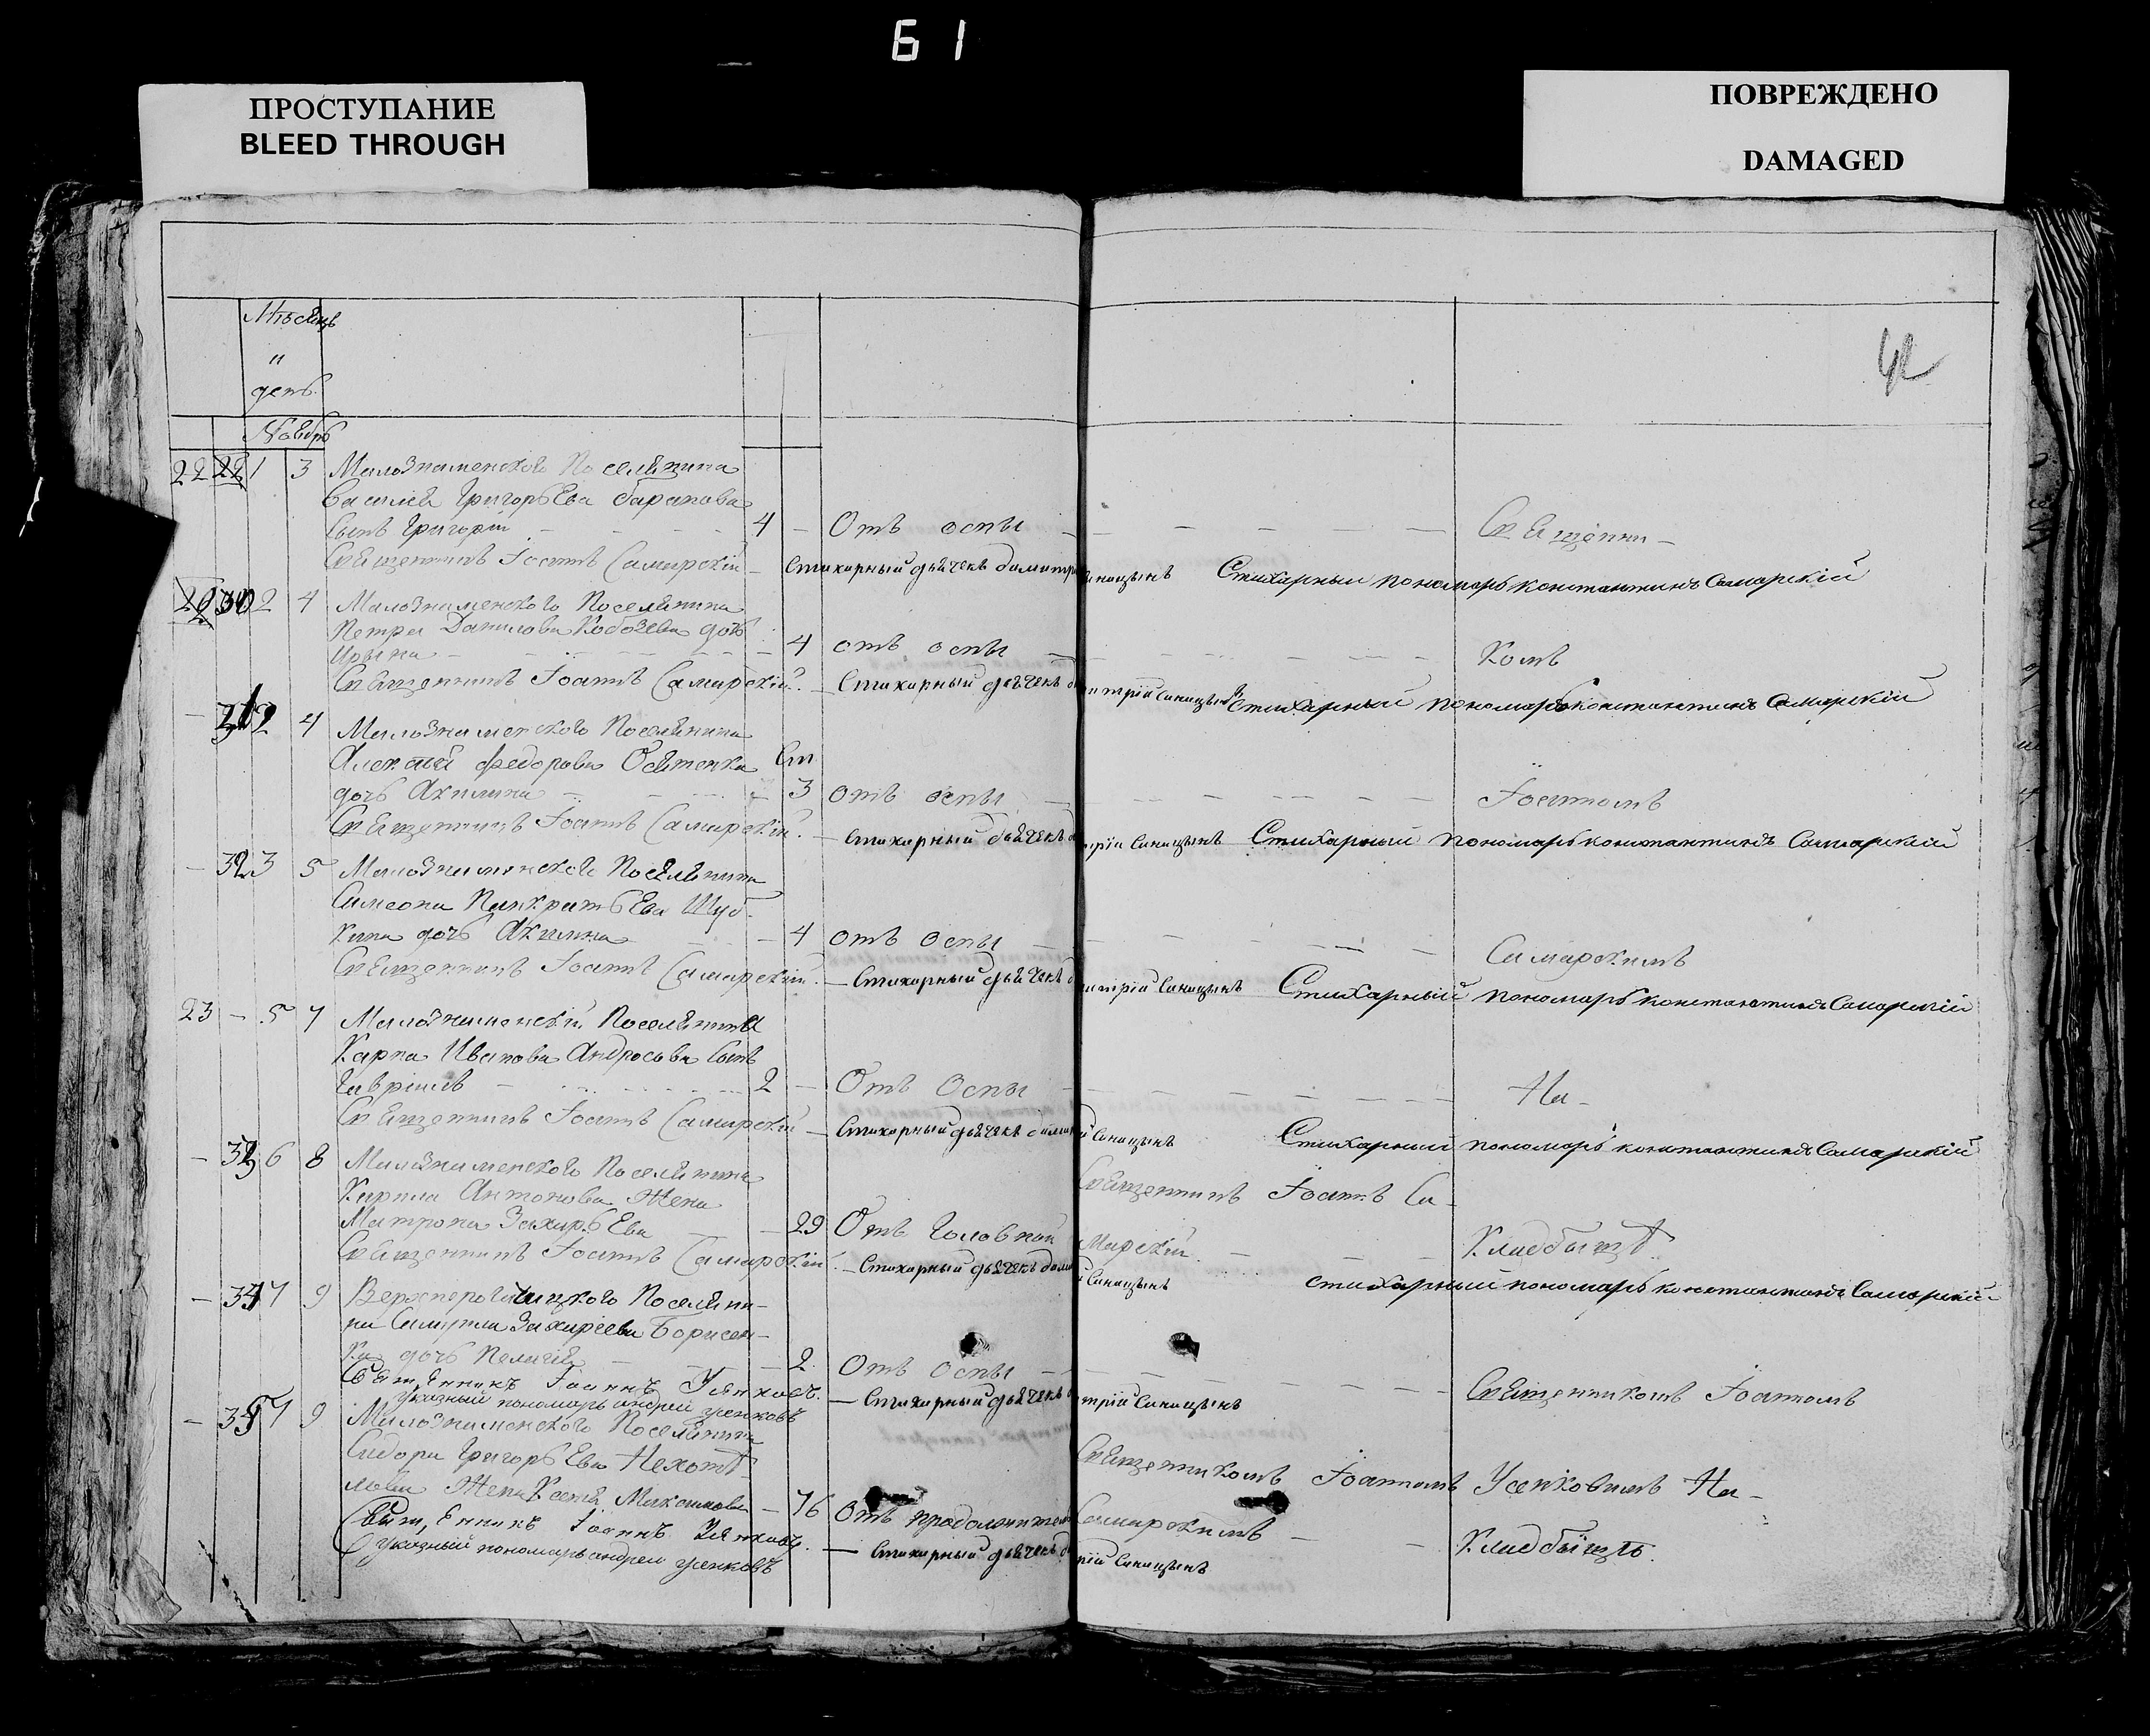 61
ПРОСТУПАНИЕ
BLEED THROUGH
ПОВРЕЖДЕНО
DAMAGED
Мѣсяцъ
и
день.
42
Ноябрь
22 1 3 Малознаменского Поселянина
Василия Григорьева Баранова
сынъ Григорій 4 Отъ оспы Священни-
Священникъ Іоаннъ Самарскій Стихарный дьячекъ Димитрій Синицынъ Стихарный пономарь Константинъ Самарскій
30 2 4 Малознаменского Поселянина
Петра Данилова Кобозева дочь
Ирына 4 отъ оспы комъ
Священникъ Іоаннъ Самарскій. Стихарный дьячекъ Димитрій Синицынъ Стихарный пономарь Константинъ Самарскій
2 4 Малознаменского Поселянина
Алексѣй Федорова
дочь Акилина 3 отъ оспы Іоанномъ
Священникъ Іоаннъ Самарскій. Стихарный дьячекъ Синицынъ Стихарный пономарь Константинъ Самарскій
3 5 Малознаменского Поселянина
Симеона Панкратьева Шуб-
кина дочь Акилина 4 отъ оспы Самарскимъ
Священникъ Іоаннъ Самарскій. Стихарный дьячекъ Димитрій Синицынъ Стихарный пономарь Константинъ Самарскій
23 5 7 Малознаменскій Поселянина
Карпа Иванова Андросова сынъ
Гавріилъ 2 Отъ Оспы На-
Священникъ Іоаннъ Самарскій Стихарный дьячекъ Синицынъ Стихарный пономарь Константинъ Самарскій
6 8 Малознаменского Поселянина
Кирила Антонова Жена Священникъ Іоаннъ Са-
Матрона Захарьева 29 Отъ Головной марскій Кладбищѣ
Священникъ Іоаннъ Самарскій. Стихарный дьячекъ Синицынъ стихарный пономарь Константинъ Самарскій
7 9 Поселяни-
на Захарьева Борисен-
ка дочь Пелагея 2 Отъ оспы Священникомъ Іоанномъ
Священникъ Іоаннъ Усенковъ. Стихарный дьячекъ Синицынъ
Указный пономарь Андрей Усенковъ
7 9 Малознаменского Поселянина
Сидора Григорьева Священникомъ Іоанномъ Усенковымъ На-
Жена Максимова 76 Отъ Самарскимъ Кладбищѣ.
Священникъ Іоаннъ Усенковъ. Стихарный дьячекъ Синицынъ
Указный пономарь Андрей Усенковъ